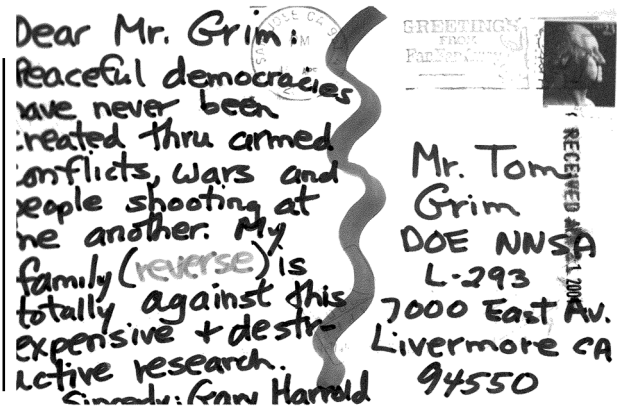 Dear Mr. Grim:
Peaceful democracies
have never been
created thru armed
conflicts, wars and
people shooting at
one another. My
family (reverse) is
totally against this
expensive + destr-
uctive research.
Sincerely: Gary Harrold
SAN JOSE CA
PM
GREETINGS
FROM
RECEIVED
Mr. Tom
Grim
DOE NNSA
L-293
7000 East Av.
Livermore CA
94550